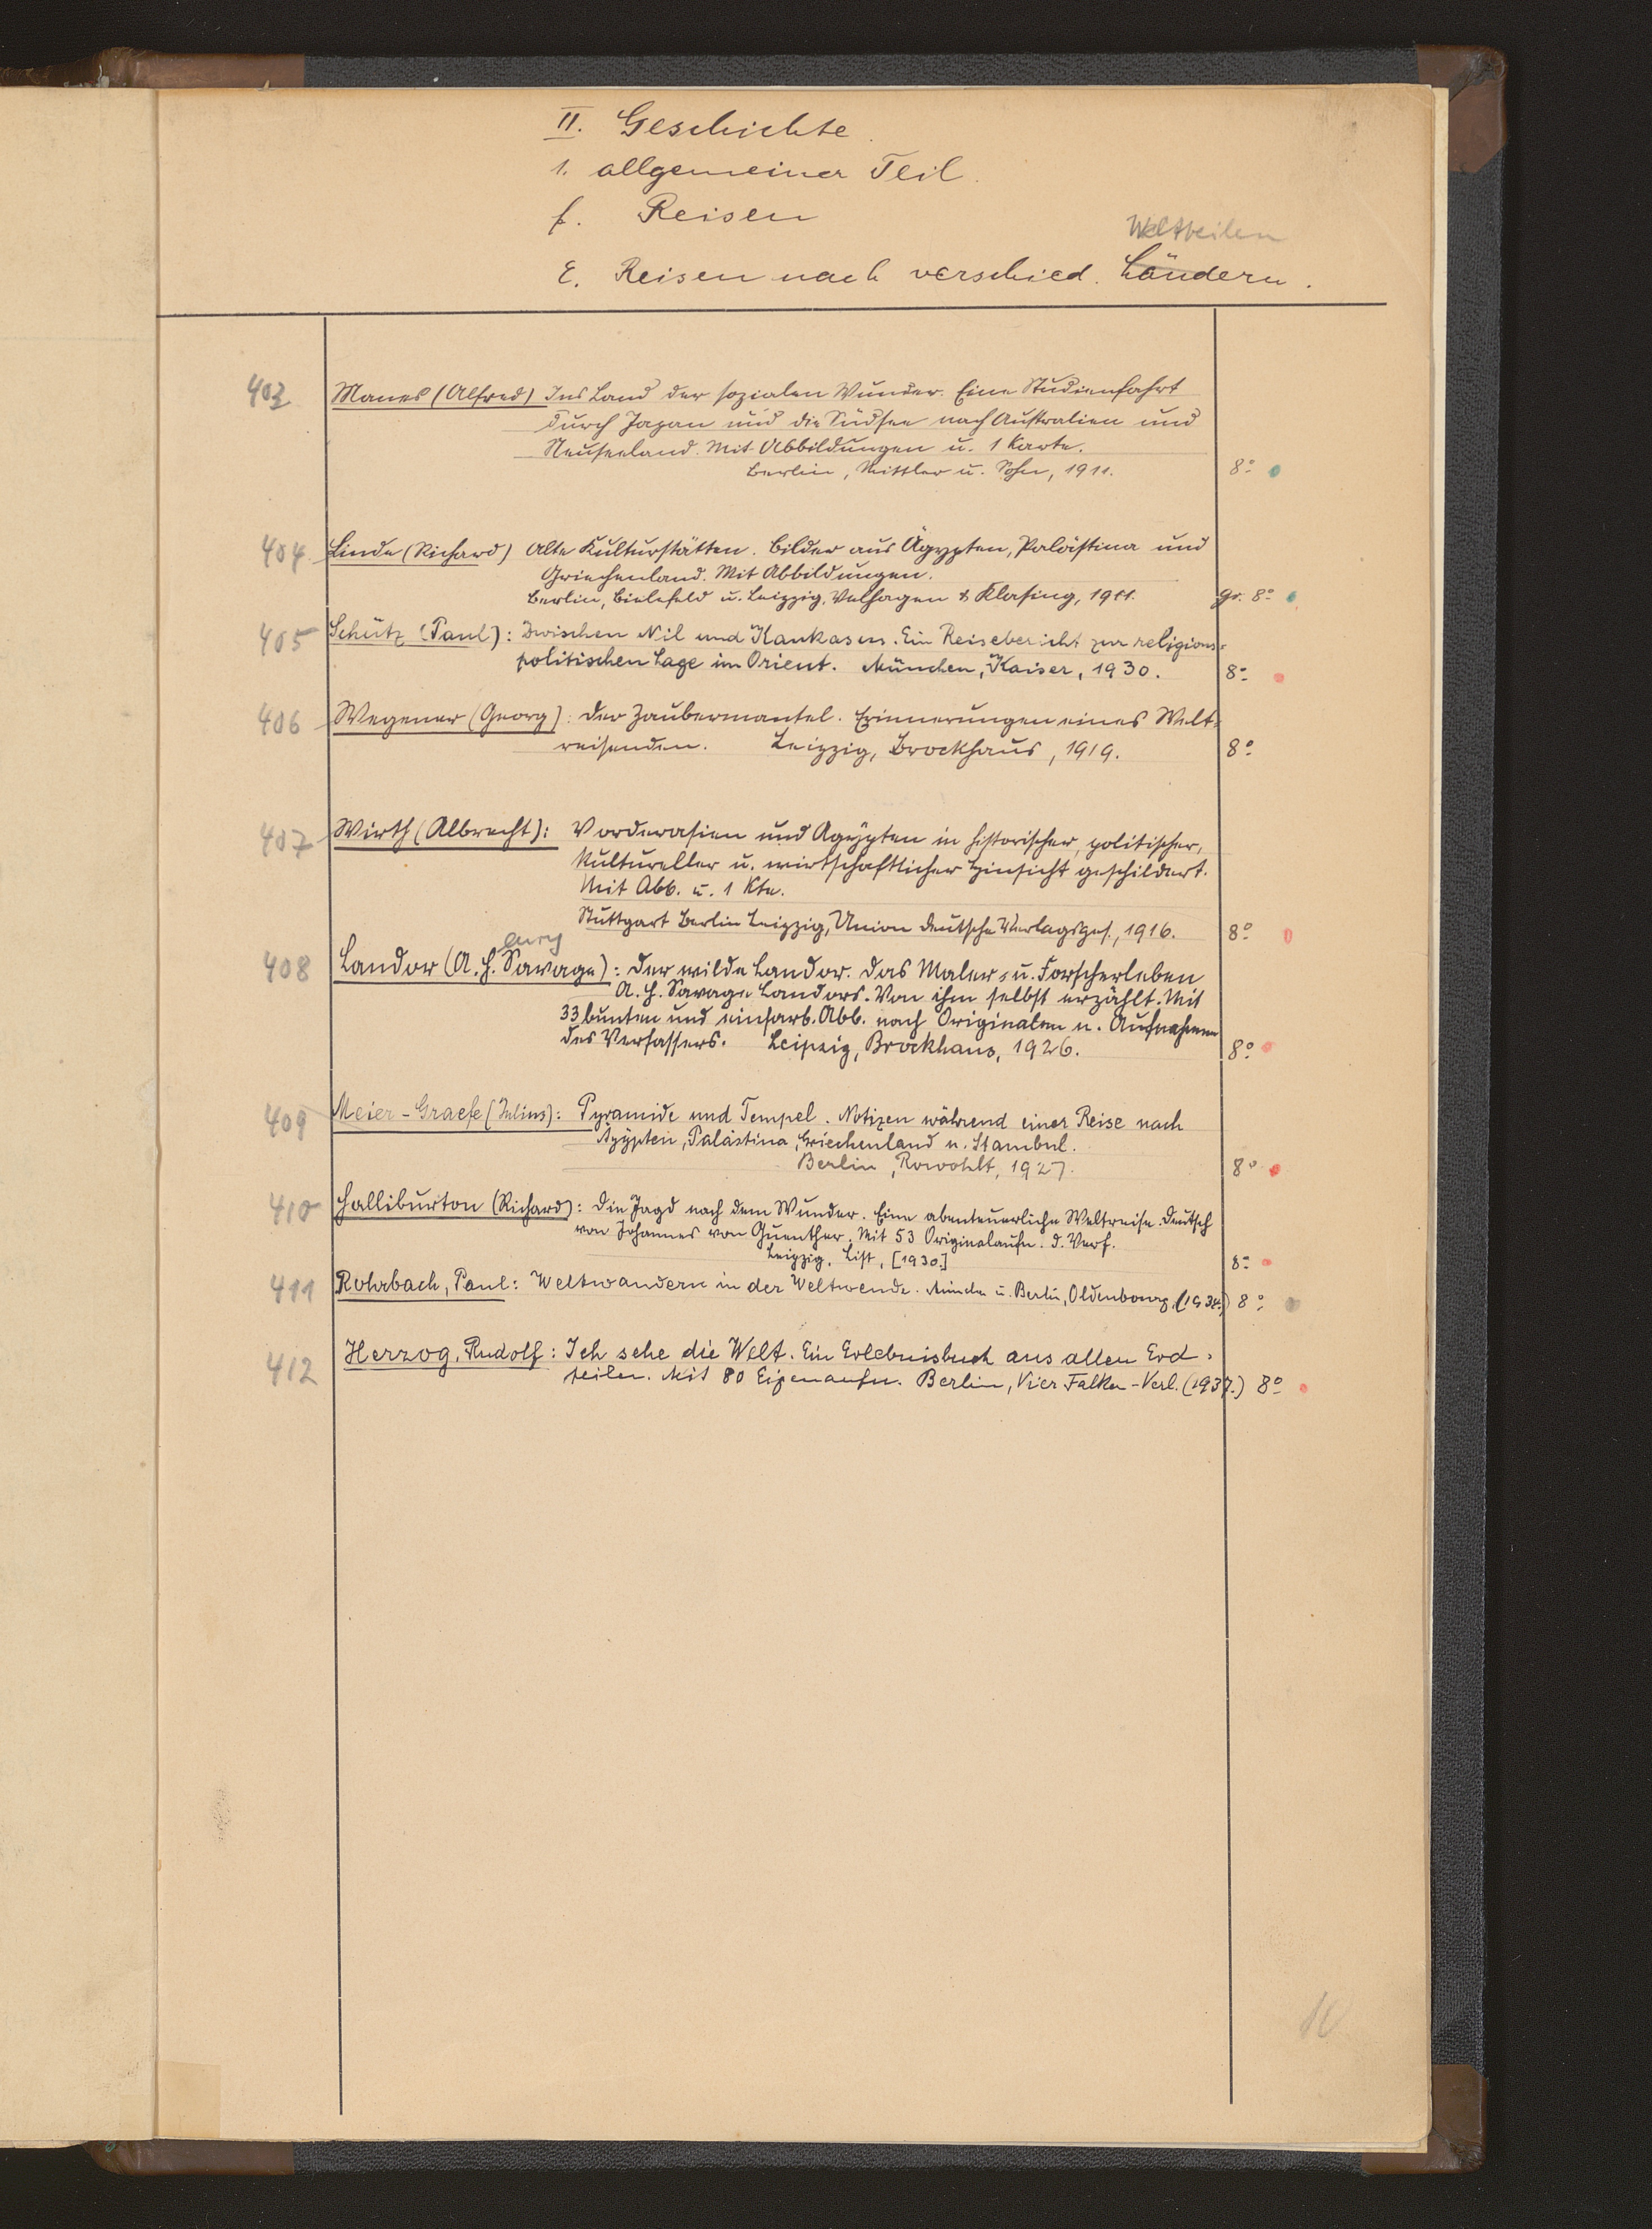 II. Geschichte.
1. allgemeiner Teil.
f. Reisen
Weltteilen
ε. Reisen nach verschied. Ländern.
403 Manes (Alfred) Ins Land der sozialen Wunder. Eine Studienfahrt
durch Japan und die Südsee nach Australien und
Neuseeland. Mit Abbildungen u. 1 Karte.
Berlin, Mittler u. Sohn, 1911. 8°
404 Linde (Richard) Alte Kulturstätten. Bilder aus Ägypten, Palästina und
Griechenland. Mit Abbildungen.
Berlin, Bielefeld u. Leipzig, Velhagen & Klasing, 1911. gr. 8°
405 Schütz (Paul): Zwischen Nil und Kaukasus. Ein Reisebericht zur religions-
politischen Lage im Orient. München, Kaiser, 1930. 8°
406 Wegener (Georg): Der Zaubermantel. Erinnerungen eines Welt-
reisenden. Leipzig, Brockhaus, 1919. 8°
407 Wirth (Albrecht): Vorderasien und Ägypten in historischer, politischer,
kultureller u. wirtschaftlicher Hinsicht geschildert.
Mit Abb. u. 1 Kte.
Stuttgart Berlin Leipzig, Union Deutsche Verlagsges., 1916. 8°
408 Landor (A. H. Savage): Der wilde Landor. Das Maler- u. Forscherleben
A. H. Savage Landors. Von ihm selbst erzählt. Mit
33 bunten und einfarb. Abb. nach Originalen u. Aufnahmen
des Verfassers. Leipzig, Brockhaus, 1926. 8°
409 Meier-Graefe (Julius): Pyramide und Tempel. Notizen während einer Reise nach
Ägypten, Palästina, Griechenland u. Stambul.
Berlin, Rowohlt, 1927. 8°
410 Halliburton (Richard): Die Jagd nach dem Wunder. Eine abenteuerliche Weltreise. Deutsch
von Johannes von Guenther. Mit 53 Originalaufn. d. Verf.
Leipzig, List, [1930.] 8°
411 Rohrbach, Paul: Weltwandern in der Weltwende. München u. Berlin, Oldenbourg, (1934.) 8°
412 Herzog, Rudolf: Ich sehe die Welt. Ein Erlebnisbuch aus allen Erd-
teilen. Mit 80 Eigenaufn. Berlin, Vier Falken-Verl. (1937.) 8°
10